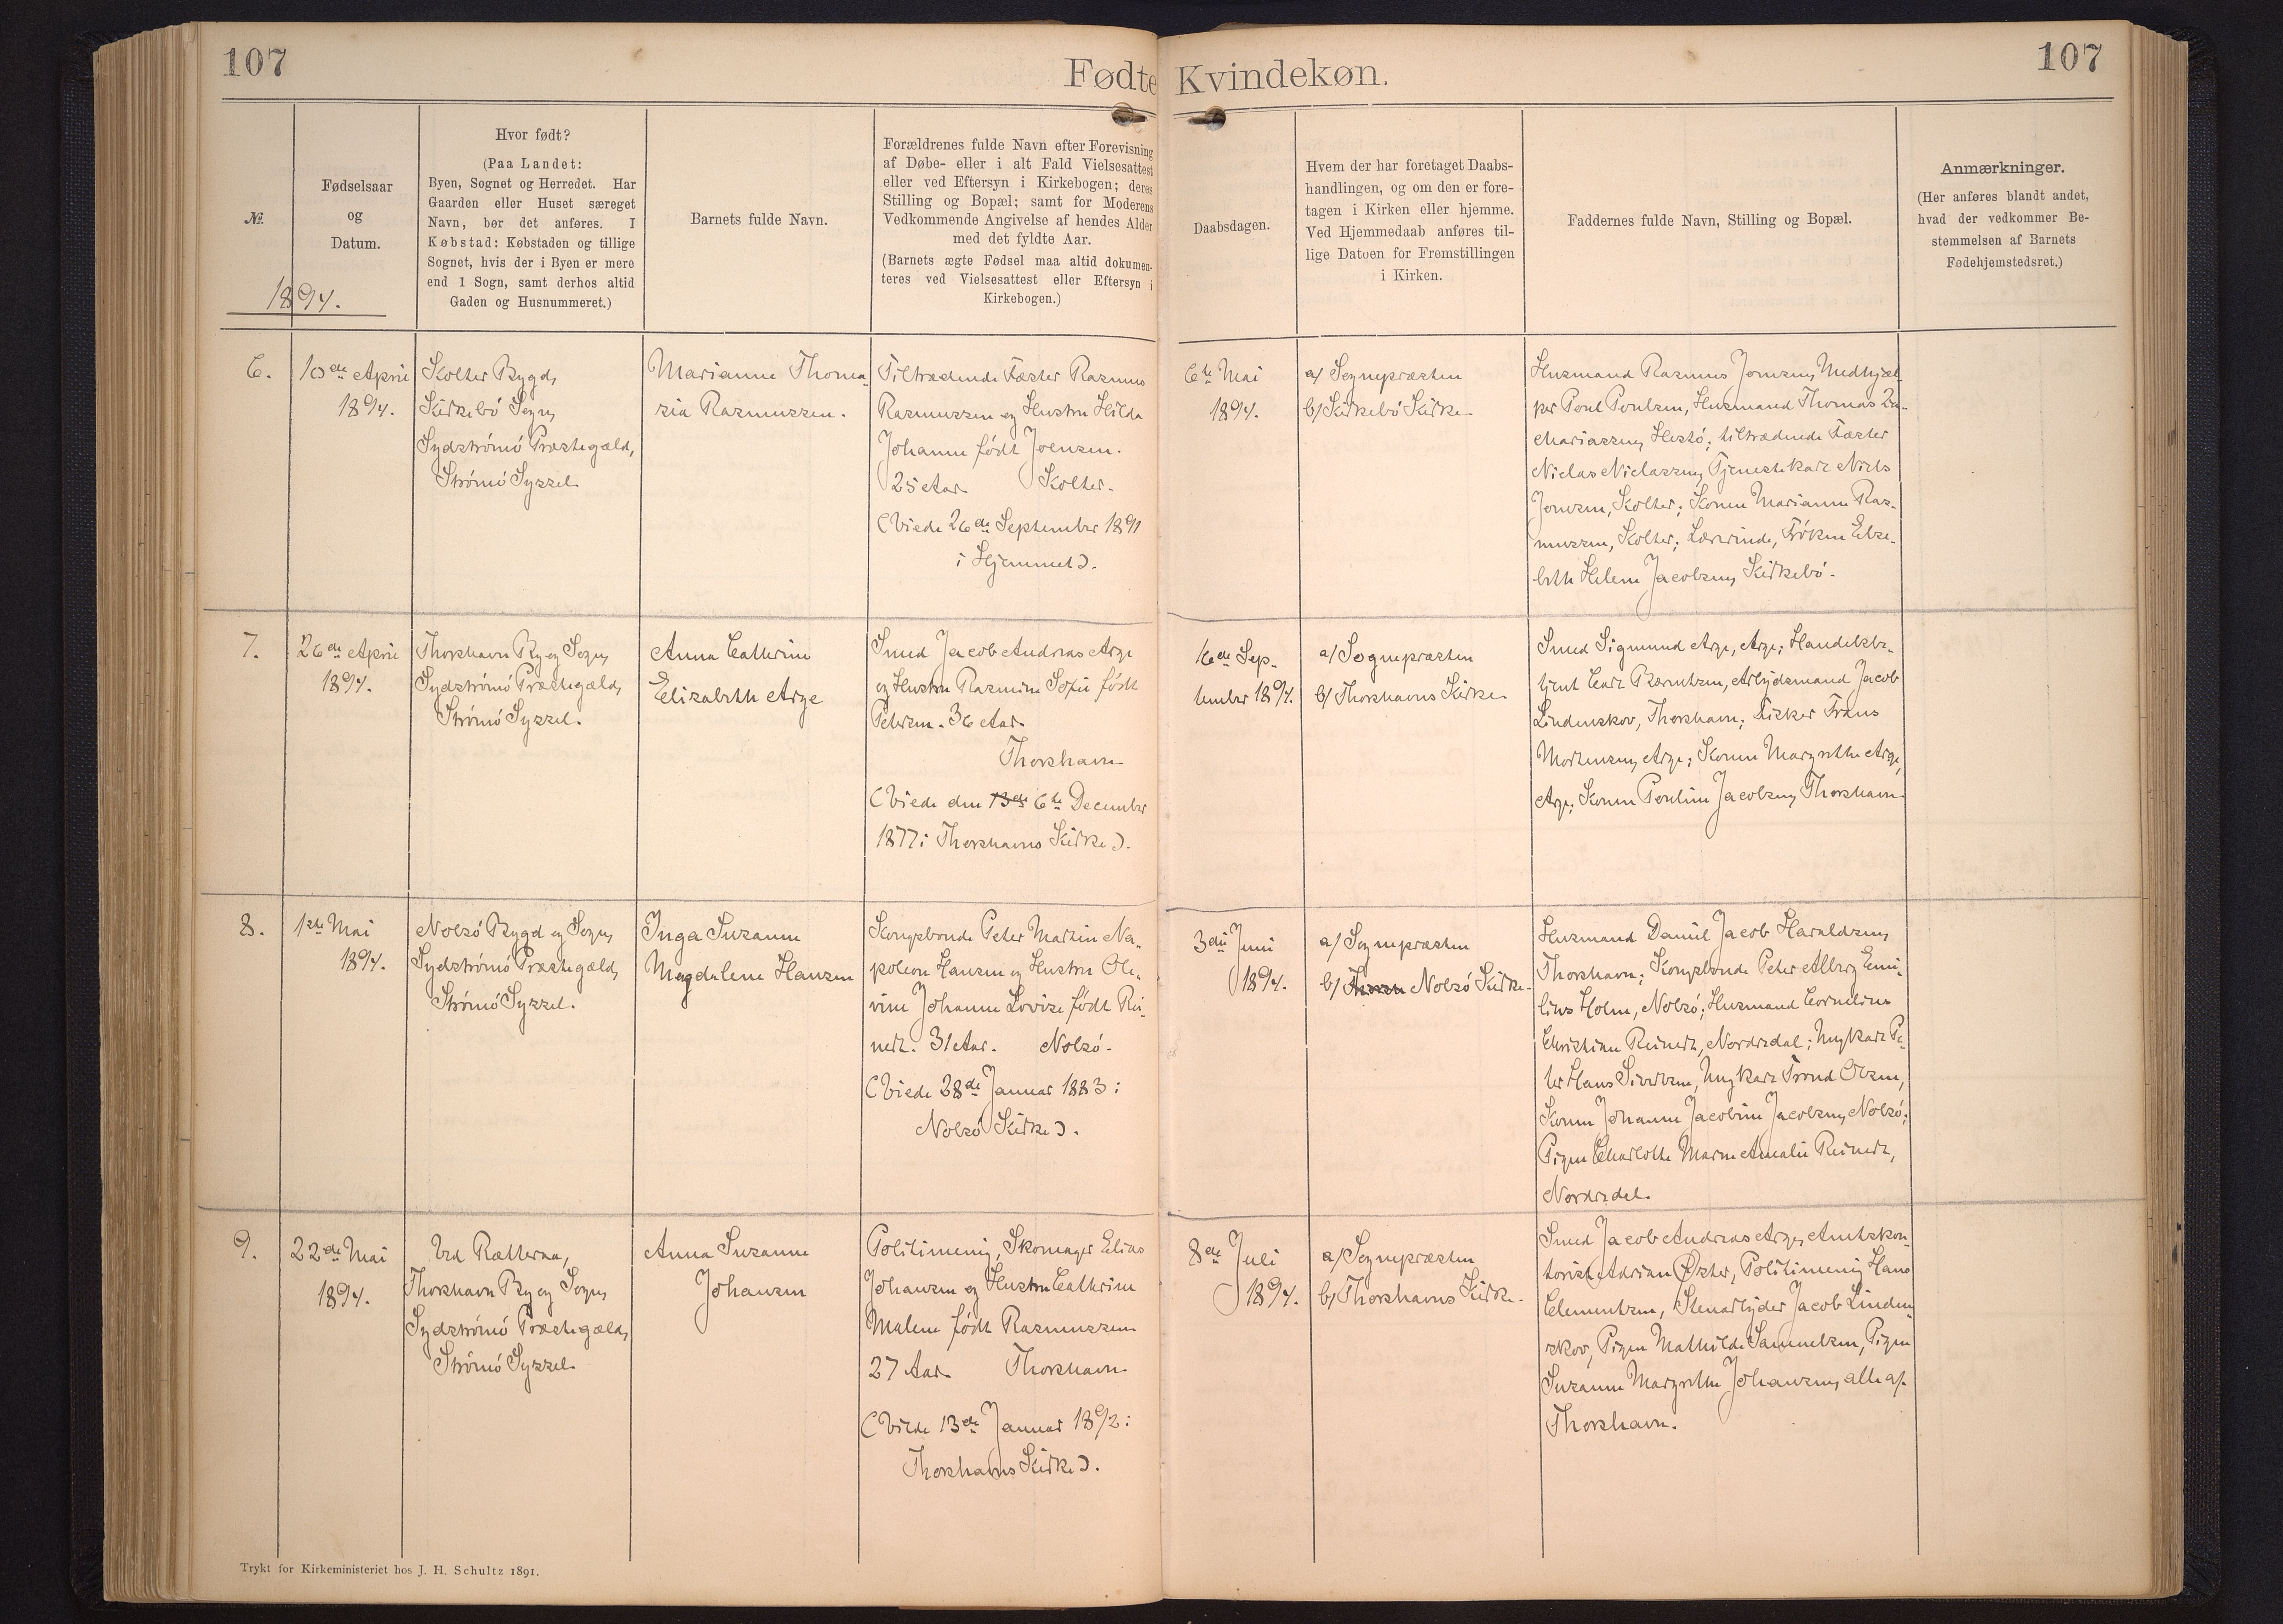 107
Fødte Kvindekøn.
107
№
1894.
Fødselsaar
og
Datum.
Hvor født?
(Paa Landet:
Byen, Sognet og Herredet. Har
Gaarden eller Huset særeget
Navn, bør det anføres. I
Købstad: Købstaden og tillige
Sognet, hvis der i Byen er mere
end 1 Sogn, samt derhos altid
Gaden og Husnummeret.)
Barnets fulde Navn.
Forældrenes fulde Navn efter Forevisning
af Døbe- eller i alt Fald Vielsesattest
eller ved Eftersyn i Kirkebogen; deres
Stilling og Bopæl; samt for Moderens
Vedkommende Angivelse af hendes Alder
med det fyldte Aar.
(Barnets ægte Fødsel maa altid dokumen-
teres ved Vielsesattest eller Eftersyn i
Kirkebogen.)
Daabsdagen.
Hvem der har foretaget Daabs-
handlingen, og om den er fore-
tagen i Kirken eller hjemme.
Ved Hjemmedaab anføres til-
lige Datoen for Fremstillingen
i Kirken.
Faddernes fulde Navn, Stilling og Bopæl.
Anmærkninger.
(Her anføres blandt andet,
hvad der vedkommer Be-
stemmelsen af Barnets
Fødehjemstedsret.)
6.
10de April
1894.
Kolter Bygd,
Kirkebö Sogn,
Sydströmö Præstegæld,
Strömö Syssel.
Marianne Thoma-
sia Rasmussen.
Tiltrædende Fæster Rasmus
Rasmussen og Hustru Hilda
Johanne født Joensen.
25 Aar. Kolter.
(Viede 26de September 1891
i Hjemmet).
6te Mai
1894.
a/ Sognepræsten
b/ Kirkebö Kirke.
Husmand Rasmus Joensen, Medhjæl-
per Poul Poulsen, Husmand Thomas Za-
chariassen, Hestö; tiltrædende Fæster
Niclas Niclassen, Tjenestekarl Niels
Joensen, Kolter; Konen Marianne Ras-
mussen, Kolter; Lærerinde, Frøken Else-
beth Helene Jacobsen, Kirkebö.
7.
26de April
1894.
Thorshavn By og Sogn,
Sydströmö Præstegæld,
Strömö Syssel.
Anna Cathrine
Elisabeth Arge
Smed Jacob Andreas Arge
og Hustru Rasmine Sofie født
Petersen. 36 Aar.
Thorshavn
(Viede den 13de 6te December
1877 i Thorshavns Kirke).
16de Sep-
tember 1894.
a/ Sognepræsten
b/ Thorshavns Kirke.
Smed Sigmund Arge, Arge; Handelsbe-
tjent Carl Bærentsen, Arbejdsmand Jacob
Lindenskov, Thorshavn; Fisker Frans
Mortensen, Arge; Konen Margrethe Arge,
Arge; Konen Pouline Jacobsen, Thorshavn.
8.
1ste Mai
1894.
Nolsö Bygd og Sogn,
Sydströmö Præstegæld,
Strömö Syssel.
Inga Susanne
Magdalene Hansen
Kongsbonde Peter Martin Na-
poleon Hansen og Hustru Ole-
vine Johanne Lovise født Rei-
nert. 31 Aar. Nolsö.
(Viede 28de Januar 1883 i
Nolsö Kirke).
3die Juni
1894.
a/ Sognepræsten
b/ Nolsö Kirke.
Husmand Daniel Jacob Haraldsen,
Thorshavn; Kongsbonde Peter Alberg Emi-
lius Holm, Nolsö; Husmand Cornelius
Christian Reinert, Nordredal; Ungkarl Pe-
ter Hans Sivertsen, Ungkarl Trond Olsen,
Konen Johanne Jacobine Jacobsen, Nolsö;
Pigen Charlotte Maren Amalie Reinert,
Nordredal.
9.
22de Mai
1894.
Ved Rætterna,
Thorshavn By og Sogn,
Sydströmö Præstegæld,
Strömö Syssel.
Anna Susanne
Johansen
Politimenig, Skomager Elias
Johansen og Hustru Cathrine
Malene født Rasmussen
27 Aar. Thorshavn
(Viede 13de Januar 1892 i
Thorshavns Kirke).
8de Juli
1894.
a/ Sognepræsten
b/ Thorshavns Kirke.
Smed Jacob Andreas Arge, Amtskon-
torist Adrian Øster, Politimenig Hans
Clementsen, Stenarbejder Jacob Linden-
skov, Pigen Mathilde Samuelsen, Pigen
Susanne Margrethe Johansen, alle af
Thorshavn.
Trykt for Kirkeministeriet hos J. H. Schultz 1891.